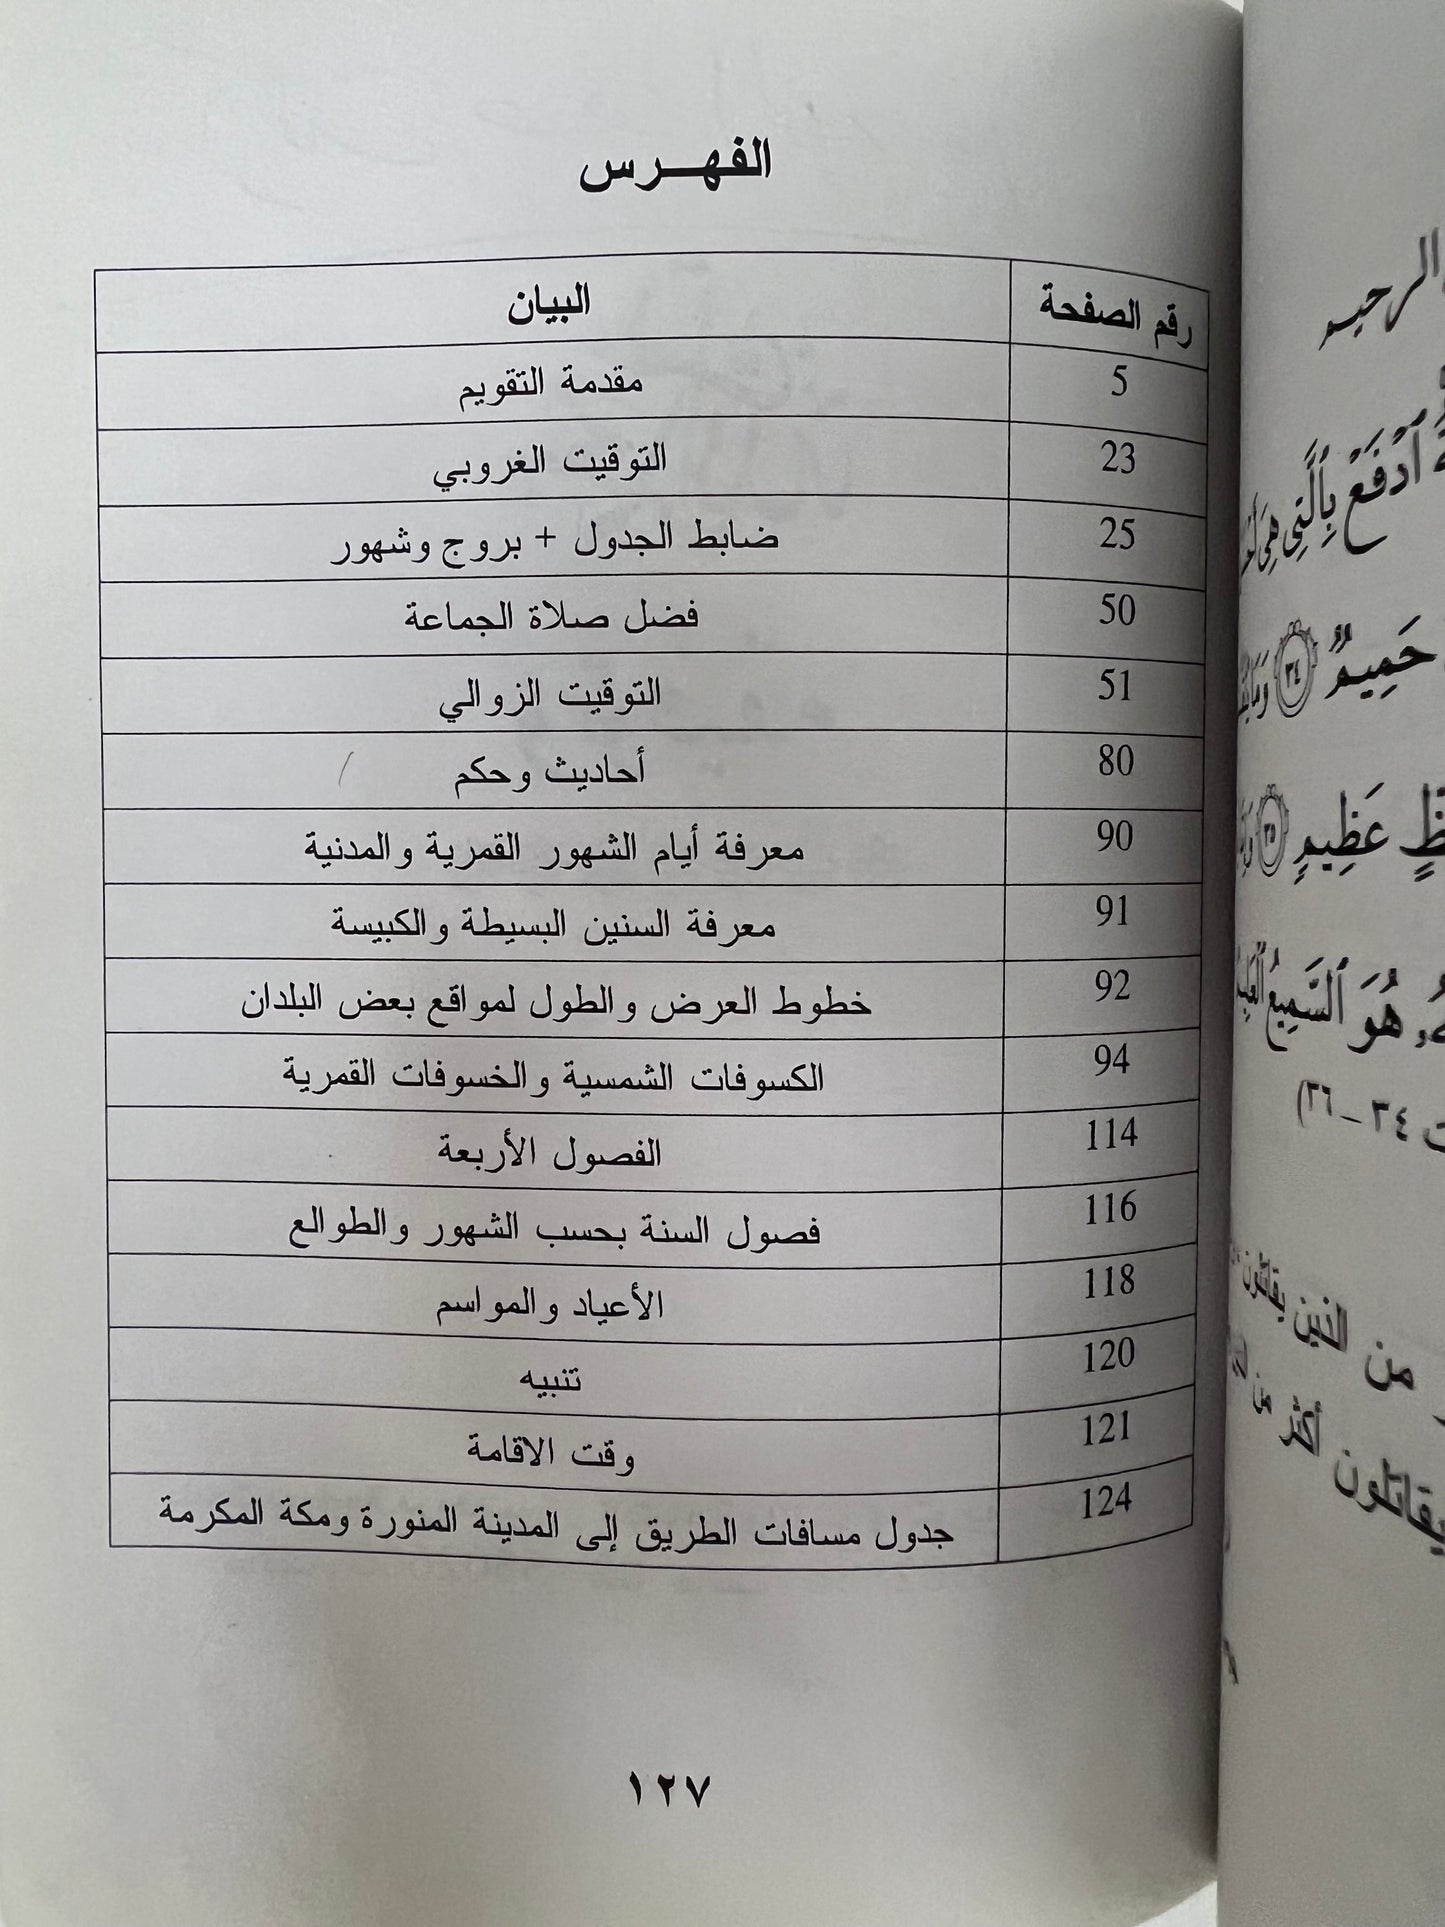 الفهرس
رقم الصفحة البيان
5 مقدمة التقويم
23 التوقيت الغروبي
25 ضابط الجدول + بروج وشهور
50 فضل صلاة الجماعة
51 التوقيت الزوالي
80 أحاديث وحكم
90 معرفة أيام الشهور القمرية والمدنية
91 معرفة السنين البسيطة والكبيسة
92 خطوط العرض والطول لمواقع بعض البلدان
94 الكسوفات الشمسية والخسوفات القمرية
114 الفصول الأربعة
116 فصول السنة بحسب الشهور والطوالع
118 الأعياد والمواسم
120 تنبيه
121 وقت الاقامة
124 جدول مسافات الطريق إلى المدينة المنورة ومكة المكرمة
١٢٧
الرحيم
ٱدْفَعْ بِٱلَّتِي هِيَ
حَمِيمٌ ٣٤
عَظِيمٍ ٣٥
هُوَ ٱلسَّمِيعُ ٱلْعَلِيمُ
٣٤ – ٣٦)
من الذين يقاتلون
يقاتلون أكثر من